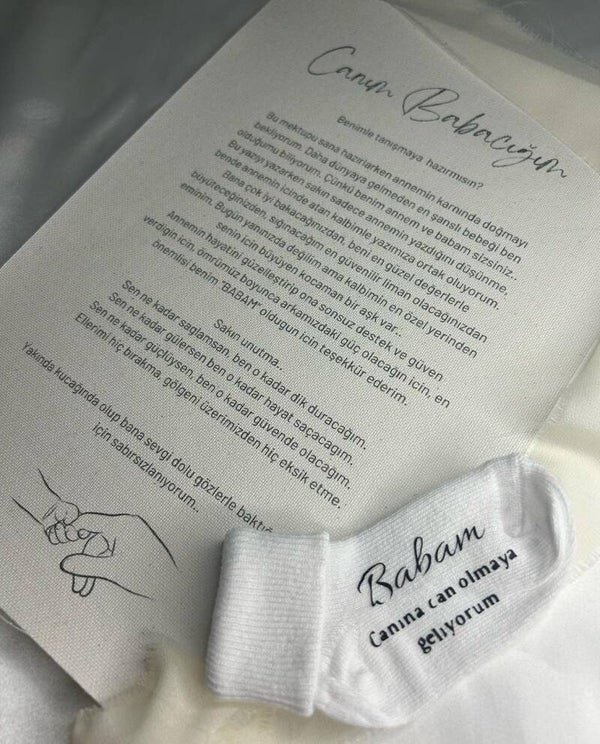 Canım Babacığım
Benimle tanışmaya hazırmısın?
Bu mektupu sana hazırlarken annemin karnında doğmayı
bekliyorum. Daha dünyaya gelmeden en şanslı bebeği ben
olduğumu biliyorum. Çünkü benim annem ve babam sizsiniz..
Bu yazıyı yazarken sakın sadece annemin yazdığını düşünme,
bende annemin icinde atan kalbimle yazımıza ortak oluyorum.
Bana çok iyi bakacağınızdan, beni en güzel değerlerle
büyüteceğinizden, sığınacağım en güvenilir liman olacağınızdan
eminim. Bugün yanınızda değilim ama kalbimin en özel yerinden
senin için büyüyen kocaman bir aşk var..
Annemin hayatını güzelleştirip ona sonsuz destek ve güven
verdigin için, ömrümüz boyunca arkamızdaki güç olacağın icin, en
önemlisi benim "BABAM" oldugun icin teşekkür ederim.
Sakın unutma..
Sen ne kadar saglamsan, ben o kadar dik duracağım.
Sen ne kadar gülersen ben o kadar hayat saçacagım.
Sen ne kadar güçlüysen, ben o kadar güvende olacağım.
Ellerimi hiç bırakma, gölgeni üzerimizden hiç eksik etme.
Yakında kucağında olup bana sevgi dolu gözlerle
için sabırsızlanıyorum..
Babam
Canına can olmaya
geliyorum